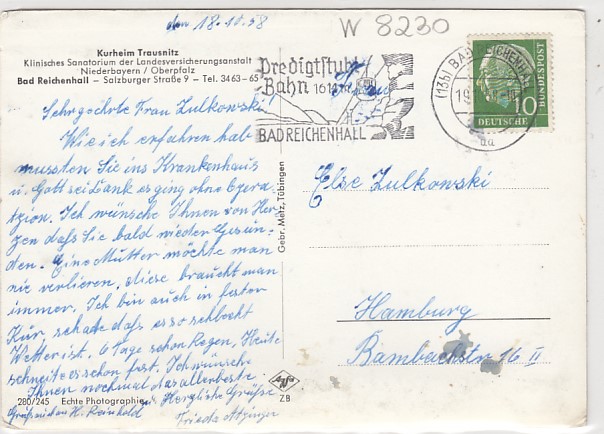 den 18.10.58
W 8230
Kurheim Trausnitz
Klinisches Sanatorium der Landesversicherungsanstalt
Niederbayern / Oberpfalz
Bad Reichenhall – Salzburger Straße 9 – Tel. 3463-65
Predigtstuhl
Bahn 1614 m
BAD REICHENHALL
(13b) BAD REICHENHALL
19
10
DEUTSCHE BUNDESPOST
Sehrgeehrte Frau Zulkowski!
Wie ich erfahren hab
mussten Sie ins Krankenhaus
u. Gott sei Dank es ging ohne Opera-
zion. Ich wünsche Ihnen von Her-
zen dafs Sie bald wieder Gesun-
den. Eine Mutter möchte man
nie verlieren, diese braucht man
immer. Ich bin auch in fester
Kur schade dafs es so schlecht
Wetter ist. 6 Tage schon Regen, Heute
schneite es schon fest. Ich wünsche
Ihnen nochmal das allerbeste.
Herzliche Grüße
Grüße auch an H. Reinhold
Frau
Else Zulkowski
Hamburg
Bambachstr 16 II
Gebr. Metz, Tübingen
280/245 Echte Photographie
Agfa
ZB